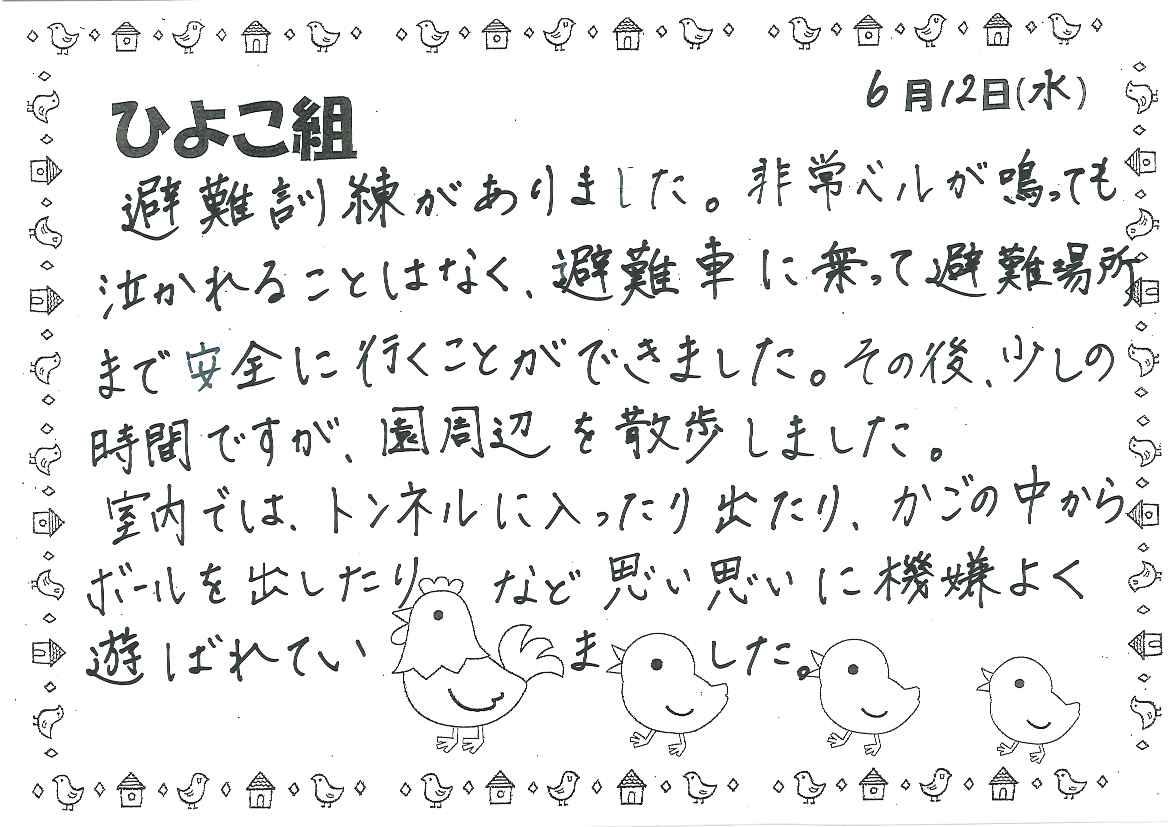 6月12日(水)
ひよこ組
避難訓練がありました。非常ベルが鳴っても
泣かれることはなく、避難車に乗って避難場所
まで安全に行くことができました。その後、少しの
時間ですが、園周辺を散歩しました。
室内では、トンネルに入ったり出たり、かごの中から
ボールを出したり など思い思いに機嫌よく
遊ばれていました。